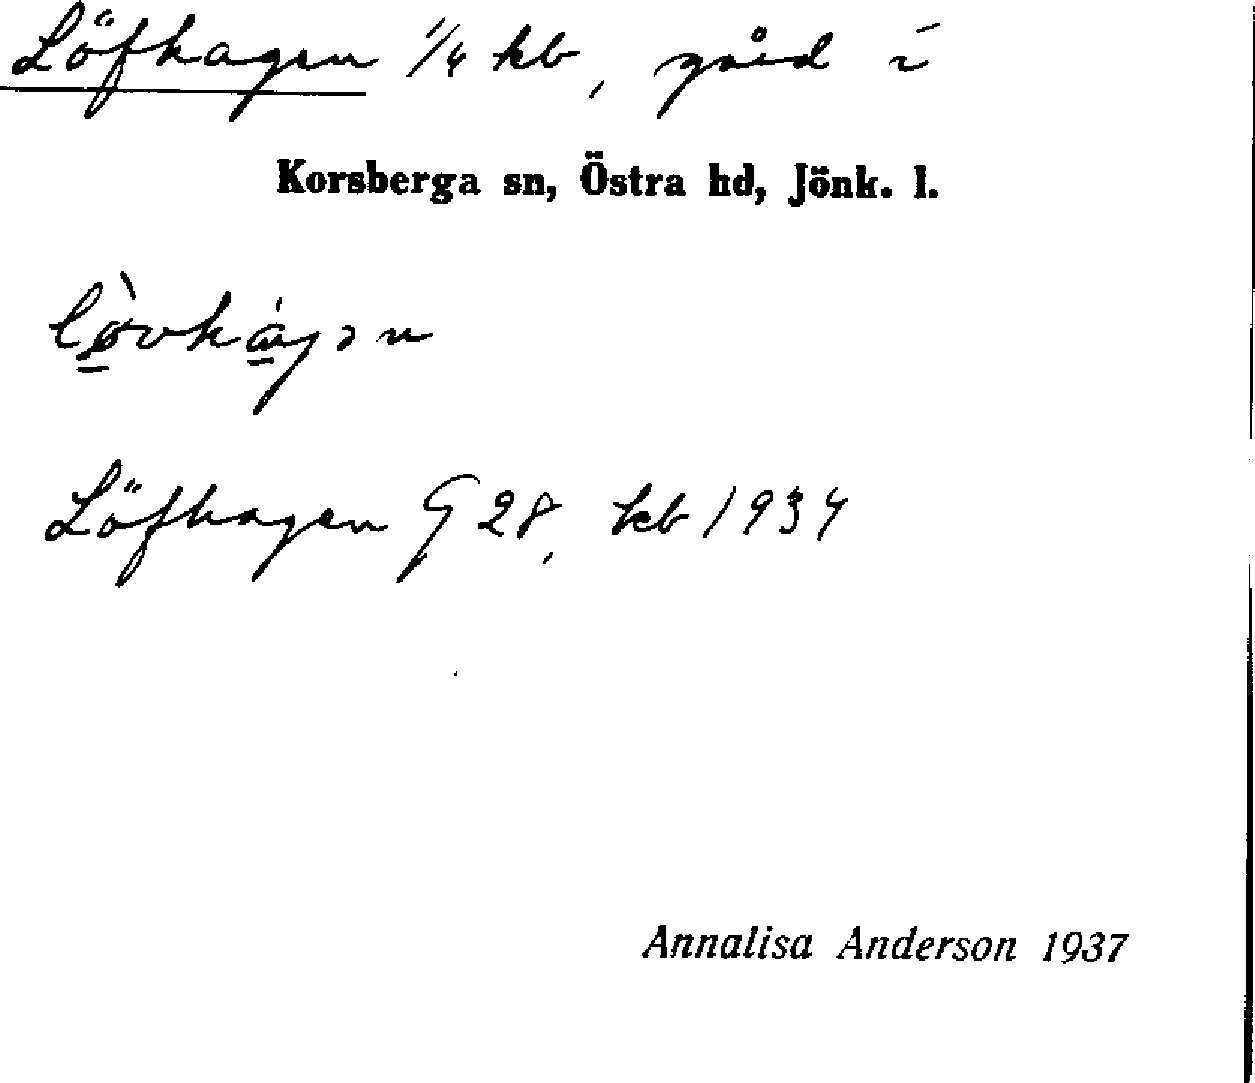 Löfhagen 1/4 hb, gård i
Korsberga sn, Östra hd, Jönk. l.
lø̀vhágən
Löfhagen G 28, kb 1934
Annalisa Anderson 1937